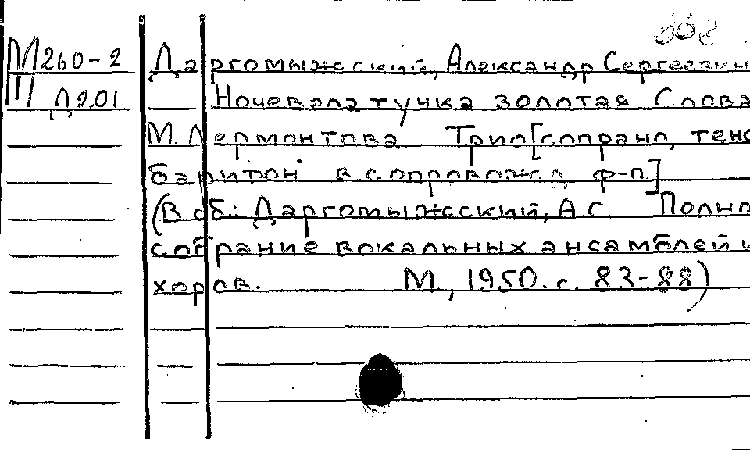 М260-2 Даргомыжский, Александр Сергеевич
Ш Д201 Ночевала тучка золотая Слова
М. Лермонтова Трио [сопрано, тено
баритон в сопровожд. ф-п.]
(В сб.: Даргомыжский, А С Полно
собрание вокальных ансамблей и
хоров. М., 1950. с. 83-88)